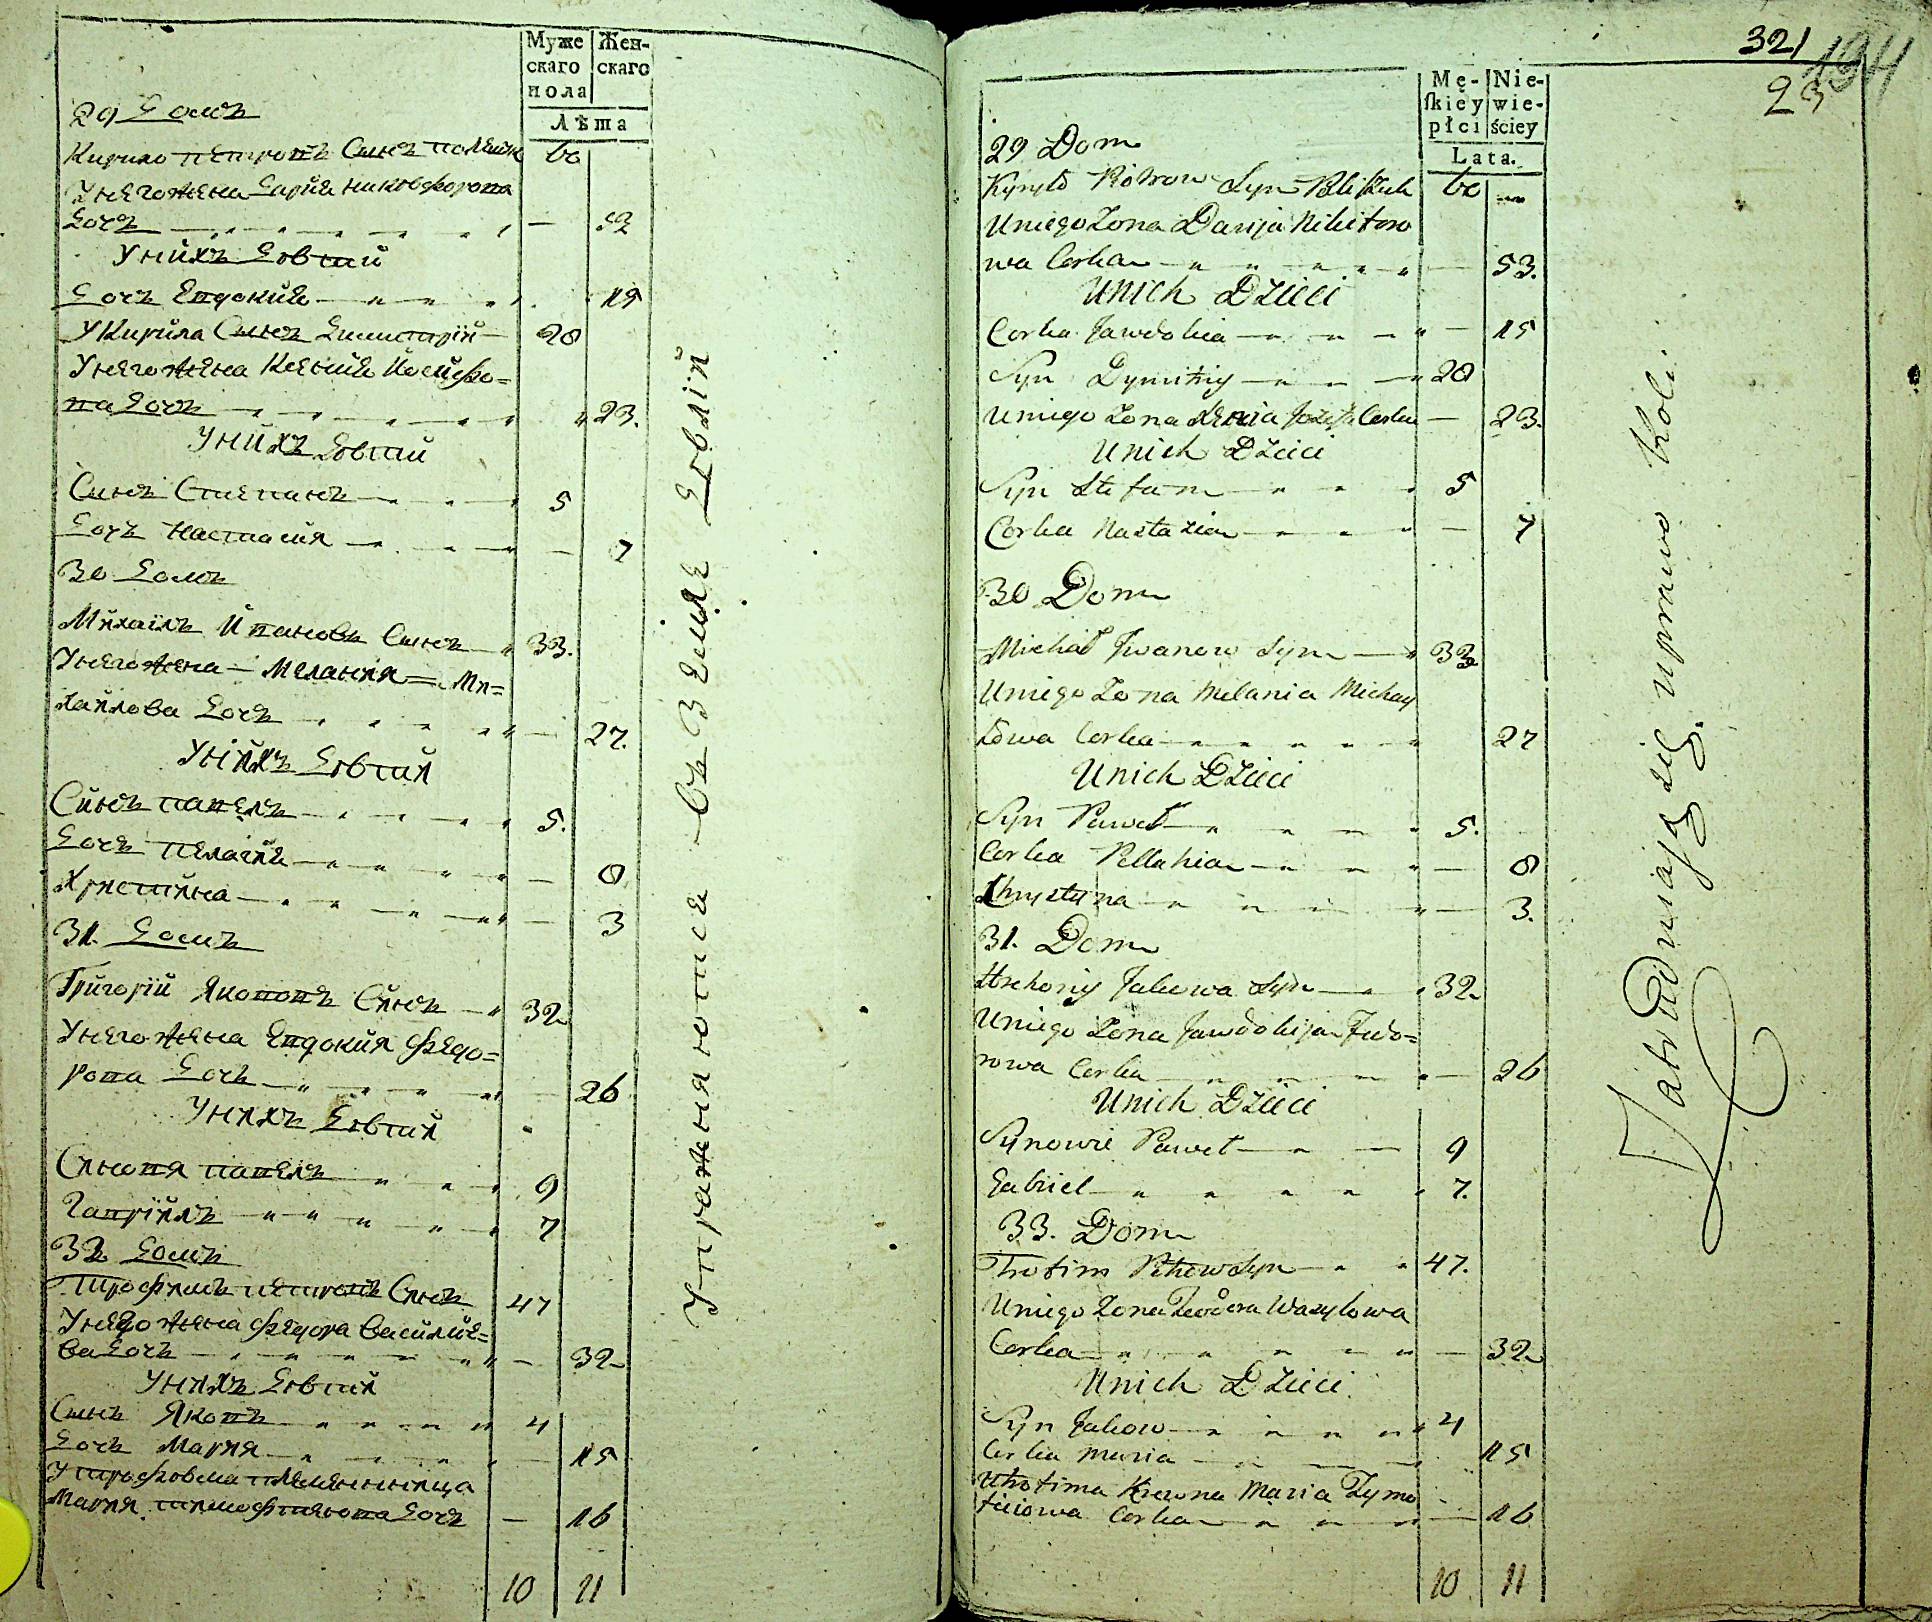 Муже
скаго
пола
Жен-
скаго
Лѣта
29 Домъ
Кирило Петровъ Сынъ
60
Унего жена Дарія Никифорова
Дочъ — 52
Унихъ Дѣтий
Дочъ Евдокия 15
У Кирила Сынъ Димитрій 20
Унего жена Ксения Иосифо=
ва Дочъ 23.
Унихъ Дѣтий
Сынъ Степанъ 5
Дочъ Настасия — 7
30 Домъ
Михаілъ Ивановъ Сынъ 33.
Унего жена Мелания Ми=
хайлова Дочъ — 27.
Унихъ Дѣтий
Сынъ Павелъ 5.
Дочъ Пелагия — 8
Христина — 3
31. Домъ
Григорій Якововъ Сынъ 32
Унего жена Евдокия Федо=
рова Дочъ 26
Унихъ Дѣтий
Сыновя Павелъ 9
Гавріилъ 7
33. Домъ
Трофимъ Петровъ Сынъ 47
Унего жена Федора Василие=
ва Дочъ — 32
Унихъ Дѣтий
Сынъ Яковъ 4
Дочъ Мария — 15
У Трофима племенница
Мария Тимофтиева Дочъ — 16
10 11
Упражняются въ Земле Деліи
321
194
23
Mę-
ſkiey
płci
Nie-
wie-
ściey
Lata.
29 Dom
Kyryło Piotrow Syn 60 —
Uniego Zona Daryja Nikitoro
wa Corka — 53.
Unich Dzieci
Corka Jawdokia — 15
Syn Dymitriy 20
Uniego Zona Xenia Jozefa Corka — 23.
Unich Dzieci
Syn Stefan 5
Corka Nastazia — 7
30 Dom
Michał Jwanow Syn 33
Uniego Zona Melania Michay
łowa Corka 27
Unich Dzieci
Syn Paweł 5.
Corka Pellahia — 8
Chrystyna — 3.
31. Dom
Hrehoriy Jakowa Syn 32
Uniego Zona Jawdokija Fedo=
rowa Corka — 26
Unich Dzieci
Synowie Paweł 9
Gabriel 7.
33. Dom
Trofim Petrow Syn 47.
Uniego Zona Teodora Wasylowa
Corka — 32
Unich Dzieci
Syn Jakow 4
Corka Maria 15
Utrofima Krewna Maria Tymo
ficiowa Corka — 16
10 11
Zatrudniają się uprawo Roli.